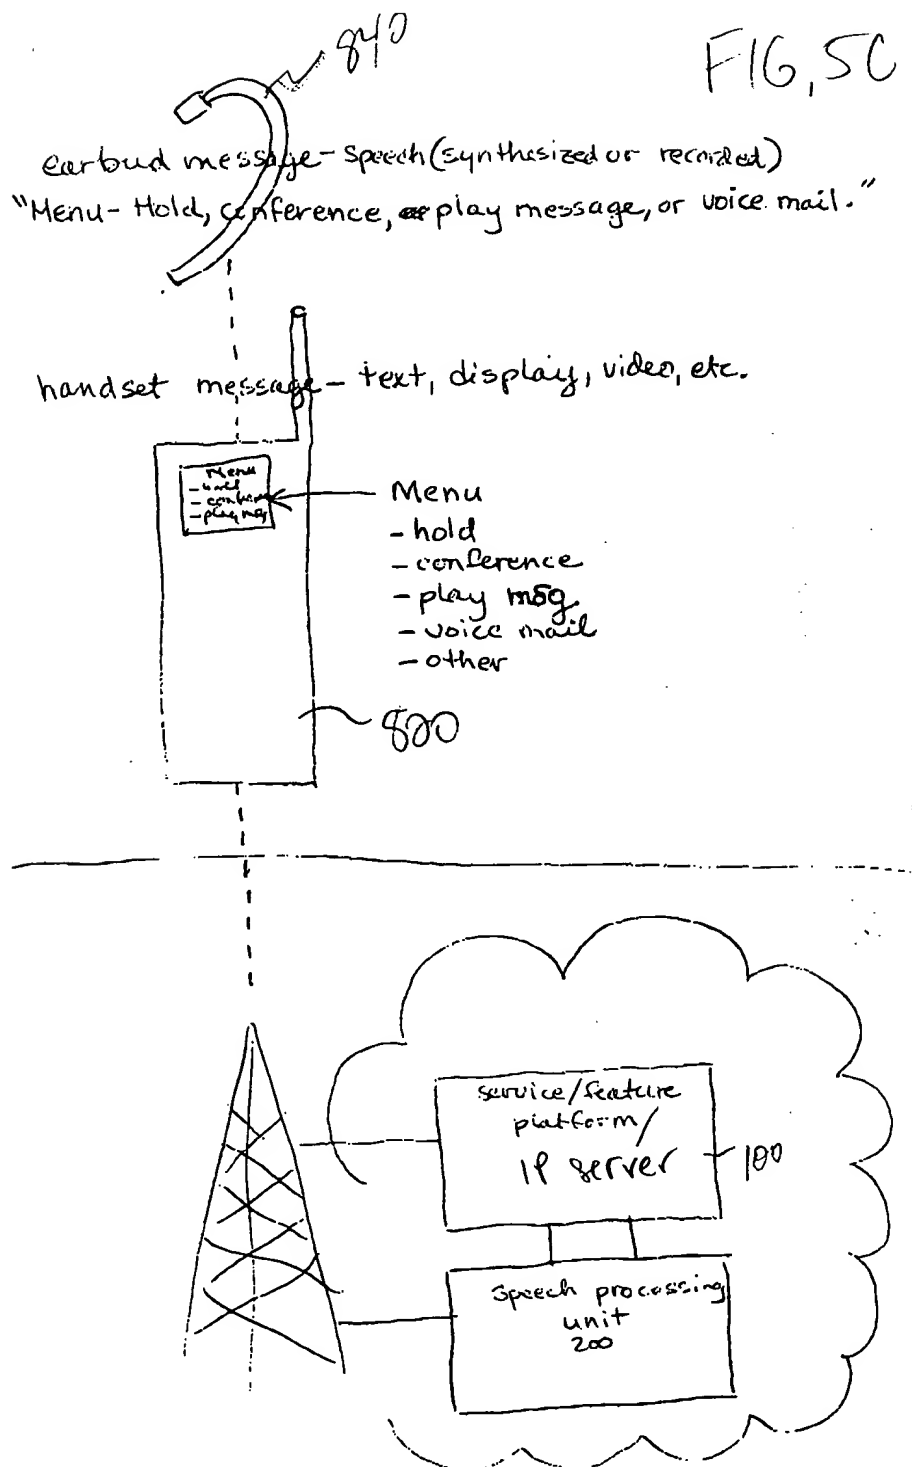 840
FIG, 5C
earbud message - Speech (synthesized or recorded)
"Menu - Hold, conference, play message, or voice mail."
handset message - text, display, video, etc.
Menu
- hold
- conference
- play msg
Menu
- hold
- conference
- play msg
- voice mail
- other
820
service/feature
platform/
IP server
100
Speech processing
unit
200